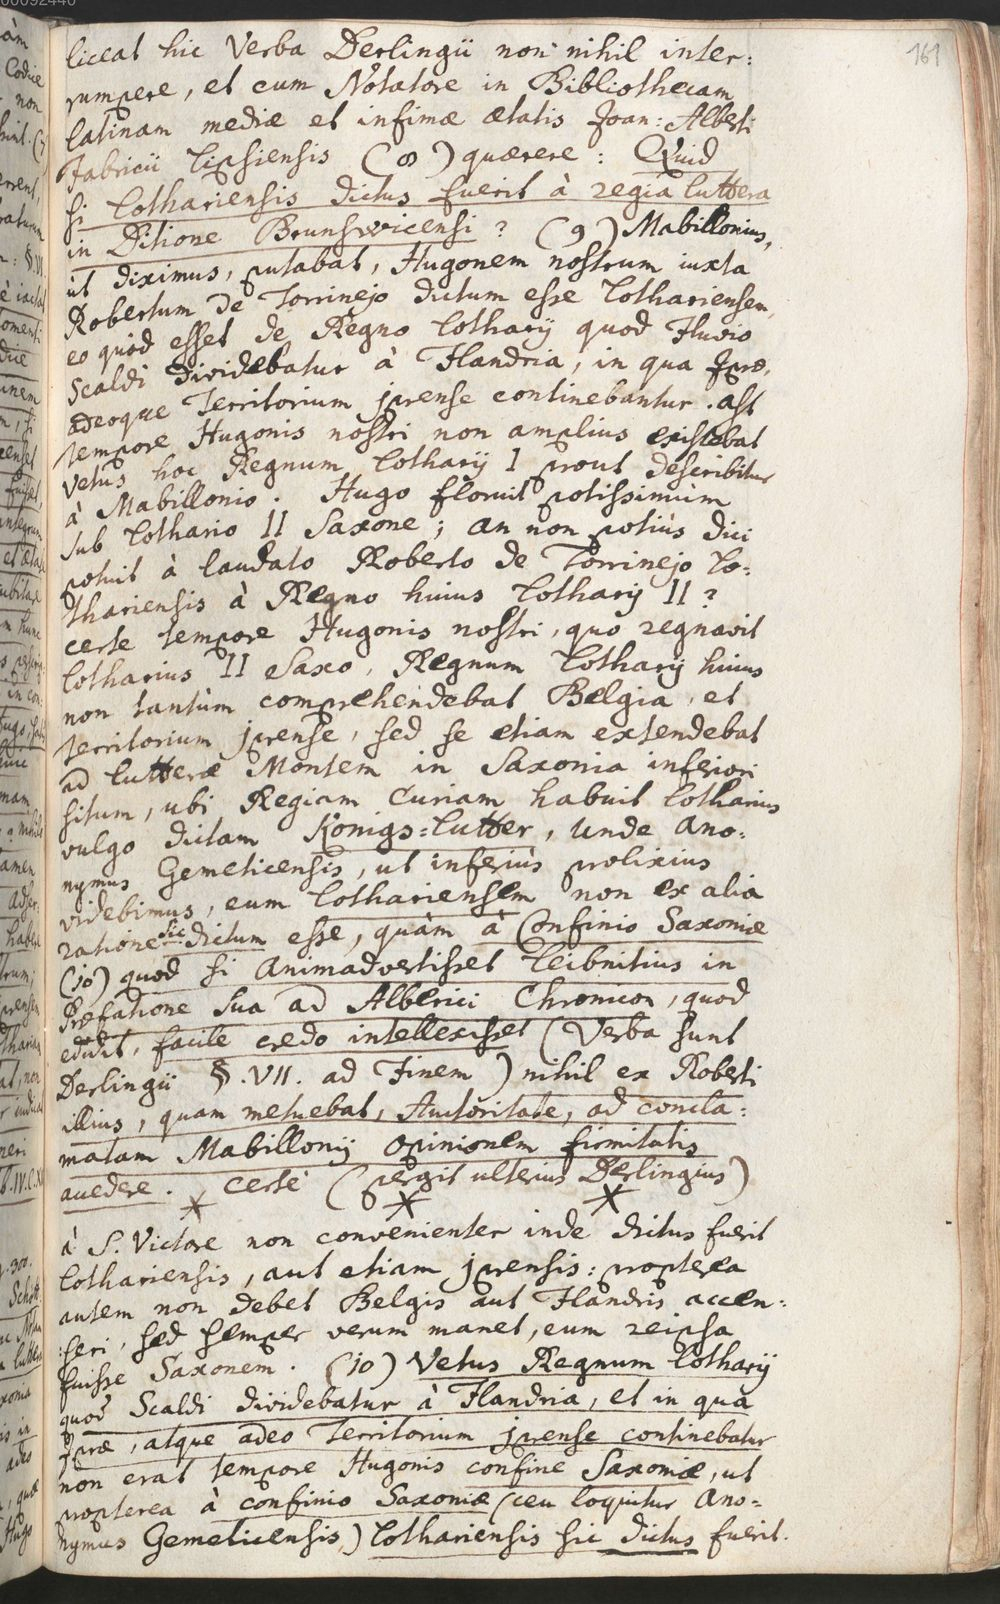 161
liceat hic Verba Derlingii non nihil inter:
rumpere, et cum Notatore in Bibliothecam
latinam mediæ et infimæ ætatis Joan: Alberti
Fabricii Lipsiensis (8) quærere: Quid
si Lothariensis dictus fuerit à regia Luttera
in Ditione Brunswicensi? (9) Mabillonius,
ut diximus, putabat, Hugonem nostrum iuxta
Robertum de Torrinejo dictum esse Lothariensem,
eo quod esset de Regno Lotharij quod Fluvio
Scaldi dividebatur à Flandria, in qua Jpræ,
adeoque Territorium jprense continebantur. ast
tempore Hugonis nostri non amplius existebat
vetus hoc Regnum Lotharij I prout describitur
à Mabillonio. Hugo floruit potissimùm
sub Lothario II Saxone; an non potiùs dici
potuit à laudato Roberto de Torrinejo Lo:
thariensis à Regno huius Lotharij II?
certe tempore Hugonis nostri, quo regnavit
Lotharius II Saxo, Regnum Lotharij huius
non tantùm comprehendebat Belgia, et
territorium jprense, sed se etiam extendebat
ad Lutteræ Montem in Saxonia inferiori
situm, ubi Regiam Curiam habuit Lotharius
vulgo dictam Konigs=Lutter, unde Ano:
nymus Gemeticensis, ut inferiùs prolixius
videbimus, eum Lothariensem non ex alia
ratione sic dictum esse, quàm à Confinio Saxoniæ
(10) quod si animadvertisset Leibnitius in
Præfatione sua ad Alberici Chronicon, quod
edidit, facile credo intellexisset (Verba sunt
Derlingii §. VII. ad Finem) nihil ex Roberti
illius, quam metuebat, Auctoritate, ad concla:
matam Mabillonij opinionem firmitatis
accedere. certè (pergit ulterius Derlingius)
à S. Victore non convenienter inde dictus fuerit
Lothariensis, aut etiam jprensis: propterea
autem non debet Belgis aut Flandris accen:
seri, sed semper verum manet, eum reipsa
fuisse Saxonem. (10) Vetus Regnum Lotharij
quod Scaldi dividebatur à Flandria, et in quà
Jpræ, atque adeo Territorium jprense continebatur
non erat tempore Hugonis confine Saxoniæ, ut
propterea à confinio Saxoniæ (ceu loquitur Ano=
nymus Gemeticensis,) Lothariensis sic dictus fuerit.